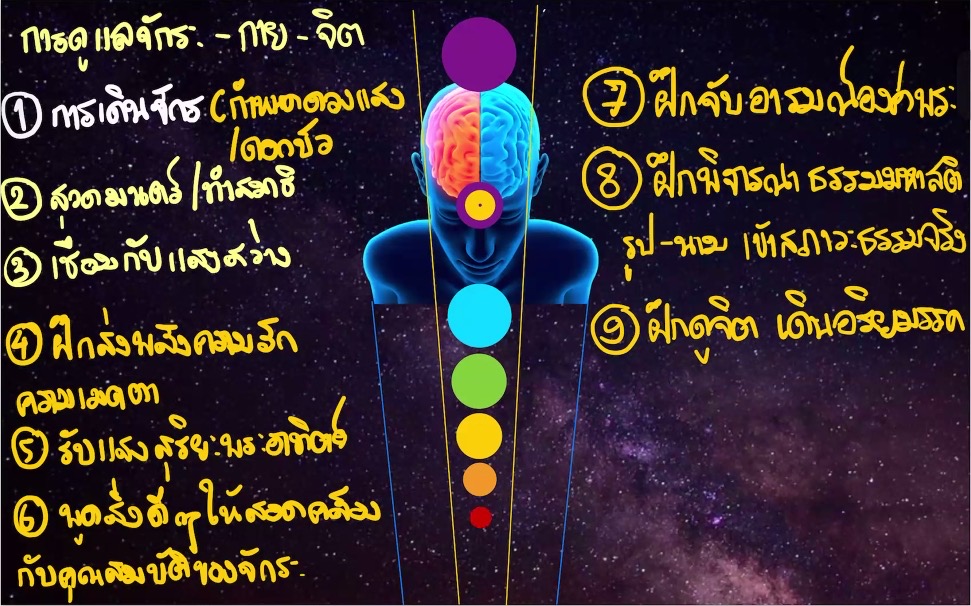 การดูแลจักระ - กาย - จิต
① การเดินจักร (กำหนดดวงแสง
/ดอกบัว
② สวดมนตร์/ทำสมาธิ
③ เชื่อมกับแสงสว่าง
④ ฝึกส่งพลังความรัก
ความเมตตา
⑤ รับแสงสุริยะพระอาทิตย์
⑥ พูดสิ่งดีๆ ให้สอดคล้อง
กับคุณสมบัติของจักระ
⑦ ฝึกจับอารมณ์องค์พระ
⑧ ฝึกพิจารณา ธรรมมหาสติ
รูป-นาม เข้าสภาวะธรรมจริง
⑨ ฝึกดูจิต เดินอริยมรรค